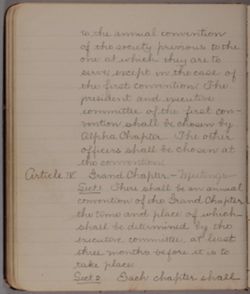 to the annual convention
of the society previous to the
one at which they are to
serve, except in the case of
the first convention. The
president and executive
committee of the first con-
vention shall be chosen by
Alpha Chapter. The other
officers shall be chosen at
the convention.
Article IV. Grand Chapter - Meetings -
Sect 1 There shall be an annual
convention of the Grand Chapter
the time and place of which
shall be determined by the
executive committee at least
three months before it is to
take place.
Sect 2. Each chapter shall